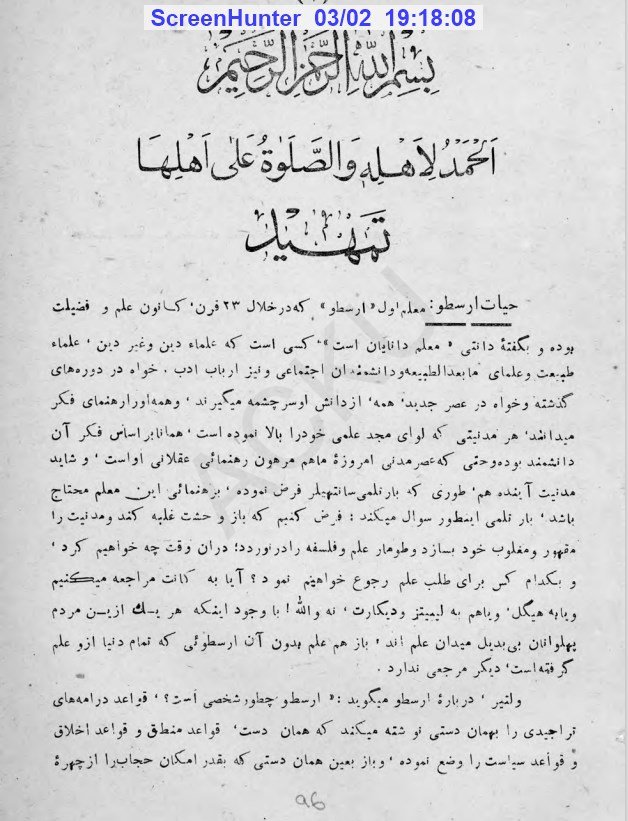 ScreenHunter 03/02 19:18:08
بِسْمِ اللهِ الرَّحْمٰنِ الرَّحِيْمِ
اَلْحَمْدُ لِاَهْلِهِ وَالصَّلوٰةُ عَلىٰ اَهْلِهَا
تَمْهِيْد
حیات ارسطو: معلم اول «ارسطو» که در خلال ۲۳ قرن، کانون علم و فضیلت
بوده و بگفتهٔ دانتی « معلم دانایان است»، کسی است که علماء دین وغیر دین ، علماء
طبیعت وعلمای ما بعد الطبیعه و دانشمندان اجتماعی ونیز ارباب ادب . خواه در دوره های
گذشته وخواه در عصر جدید، همه، از دانش او سرچشمه میگیرند ، وهمه اورا رهنمای فکر
میدانند، هر مدنیتی که لوای مجد علمی خود را بالا نموده است ، همانا بر اساس فکر آن
دانشمند بوده وحتی که عصر مدنی امروزهٔ ما هم مرهون رهنمائی عقلانی اواست ، و شاید
مدنیت آینده هم، طوری که بارتلمی سانتهیلر فرض نموده ، برهنمائی این معلم محتاج
باشد ، بار تلمی اینطور سوال میکند : فرض کنیم که باز و حشت غلبه کند ومدنیت را
مقهور و مغلوب خود بسازد وطومار علم وفلسفه را درنوردد؛ دران وقت چه خواهیم کرد ،
و بکدام کس برای طلب علم رجوع خواهیم نمود ؟ آیا به کانت مراجعه میکنیم
ویا به هیگل، ویاهم به لیبنتز ودیکارت ، نه والله ! با وجود اینکه هر یك ازین مردم
پهلوانان بی بدیل میدان علم اند ، باز هم علم بدون آن ارسطوئی که تمام دنیا ازو علم
گرفته است، دیگر مرجعی ندارد .
ولتیر ، دربارهٔ ارسطو میگوید : « ارسطو چطور شخصی است؟ ، قواعد درامه های
تراجیدی را بهمان دستی نو شته میکند که همان دست، قواعد منطق و قواعد اخلاق
و قواعد سیاست را وضع نموده ، و باز بعین همان دستی که بقدر امکان حجاب را از چهرهٔ
96
ACKU